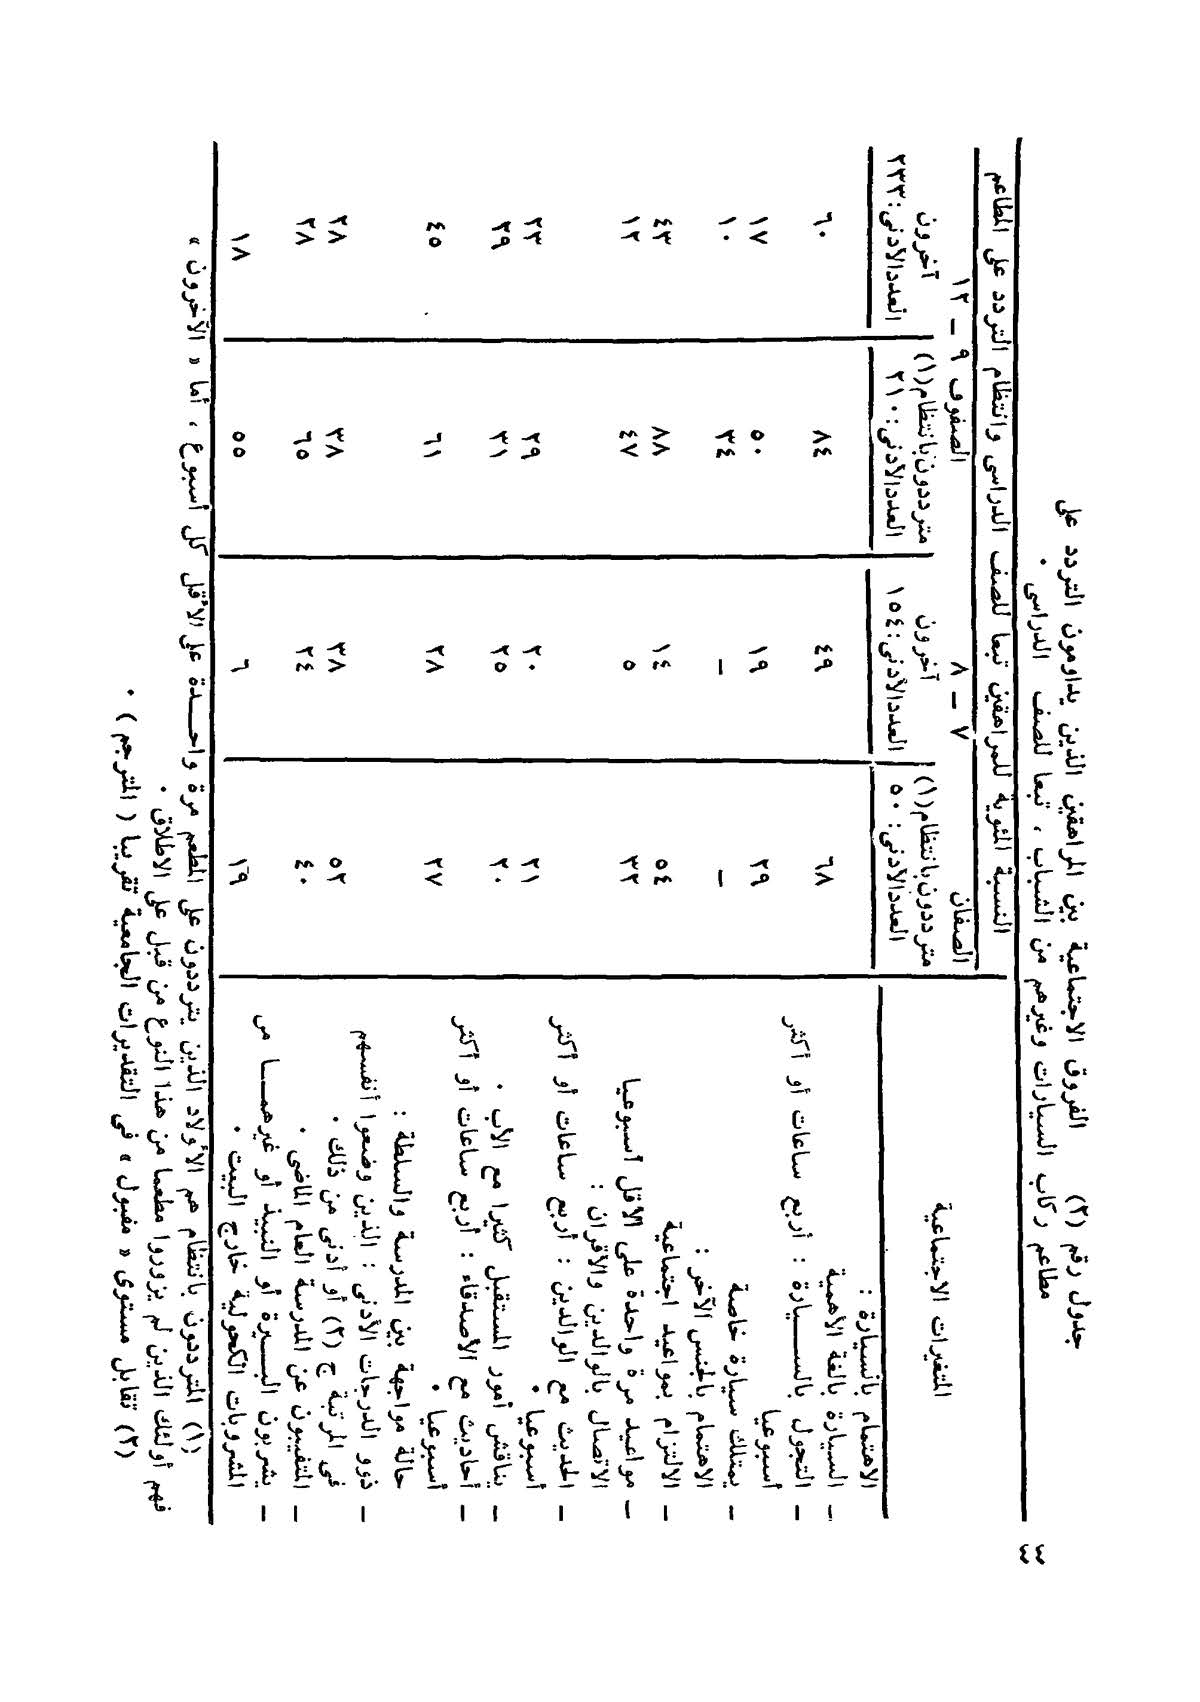 ٤٤
جدول رقم (٢) الفروق الاجتماعية بين المراهقين الذين يداومون التردد على
مطاعم ركاب السيارات وغيرهم من الشباب ، تبعا للصف الدراسى .
النسبة المئوية للمراهقين تبعا للصف الدراسى وانتظام التردد على المطاعم
المتغيرات الاجتماعية الصفان ٧ – ٨ الصفوف ٩ – ١٢
مترددون بانتظام(١) آخرون مترددون بانتظام(١) آخرون
العدد الأدنى: ٥٠ العدد الأدنى: ١٥٤ العدد الأدنى: ٢١٠ العدد الأدنى: ٢٣٣
الاهتمام بالسيارة :
– السيارة بالغة الأهمية ٦٨ ٤٩ ٨٤ ٦٠
– التجول بالسـيارة : أربع ساعات أو أكثر
أسبوعيا ٢٩ ١٩ ٥٠ ١٧
– يمتلك سيارة خاصة – – ٣٤ ١٠
الاهتمام بالجنس الآخر :
– الالتزام بمواعيد اجتماعية ٥٤ ١٤ ٨٨ ٤٣
– مواعيد مرة واحدة على الأقل أسبوعيا ٣٢ ٥ ٤٧ ١٢
الاتصال بالوالدين والأقران :
– الحديث مع الوالدين : أربع ساعات أو أكثر
أسبوعيا . ٢١ ٢٠ ٢٩ ٢٣
– يناقش أمور المستقبل كثيرا مع الأب . ٢٠ ٢٥ ٣١ ٢٩
– أحاديث مع الأصدقاء : أربع ساعات أو أكثر
أسبوعيا . ٢٧ ٢٨ ٦١ ٤٥
حالة مواجهة بين المدرسة والسلطة :
– ذوو الدرجات الأدنى : الذين وضعوا أنفسهم
فى المرتبة ج (٢) أو أدنى من ذلك . ٥٢ ٣٨ ٣٨ ٢٨
– المتغيبون عن المدرسة العام الماضى . ٤٠ ٢٤ ٦٥ ٢٨
– يشربون البـيرة أو النبيذ أو غيرهمــا من
المشروبات الكحولية خارج البيت . ١٩ ٦ ٥٥ ١٨
(١) المترددون بانتظام هم الأولاد الذين يترددون على المطعم مرة واحـدة على الأقل كل أسبوع ، أما « الآخرون »
فهم أولئك الذين لم يزوروا مطعما من هذا النوع من قبل على الاطلاق .
(٢) تقابل مستوى « مقبول » فى التقديرات الجامعية تقريبا ( المترجم ) .